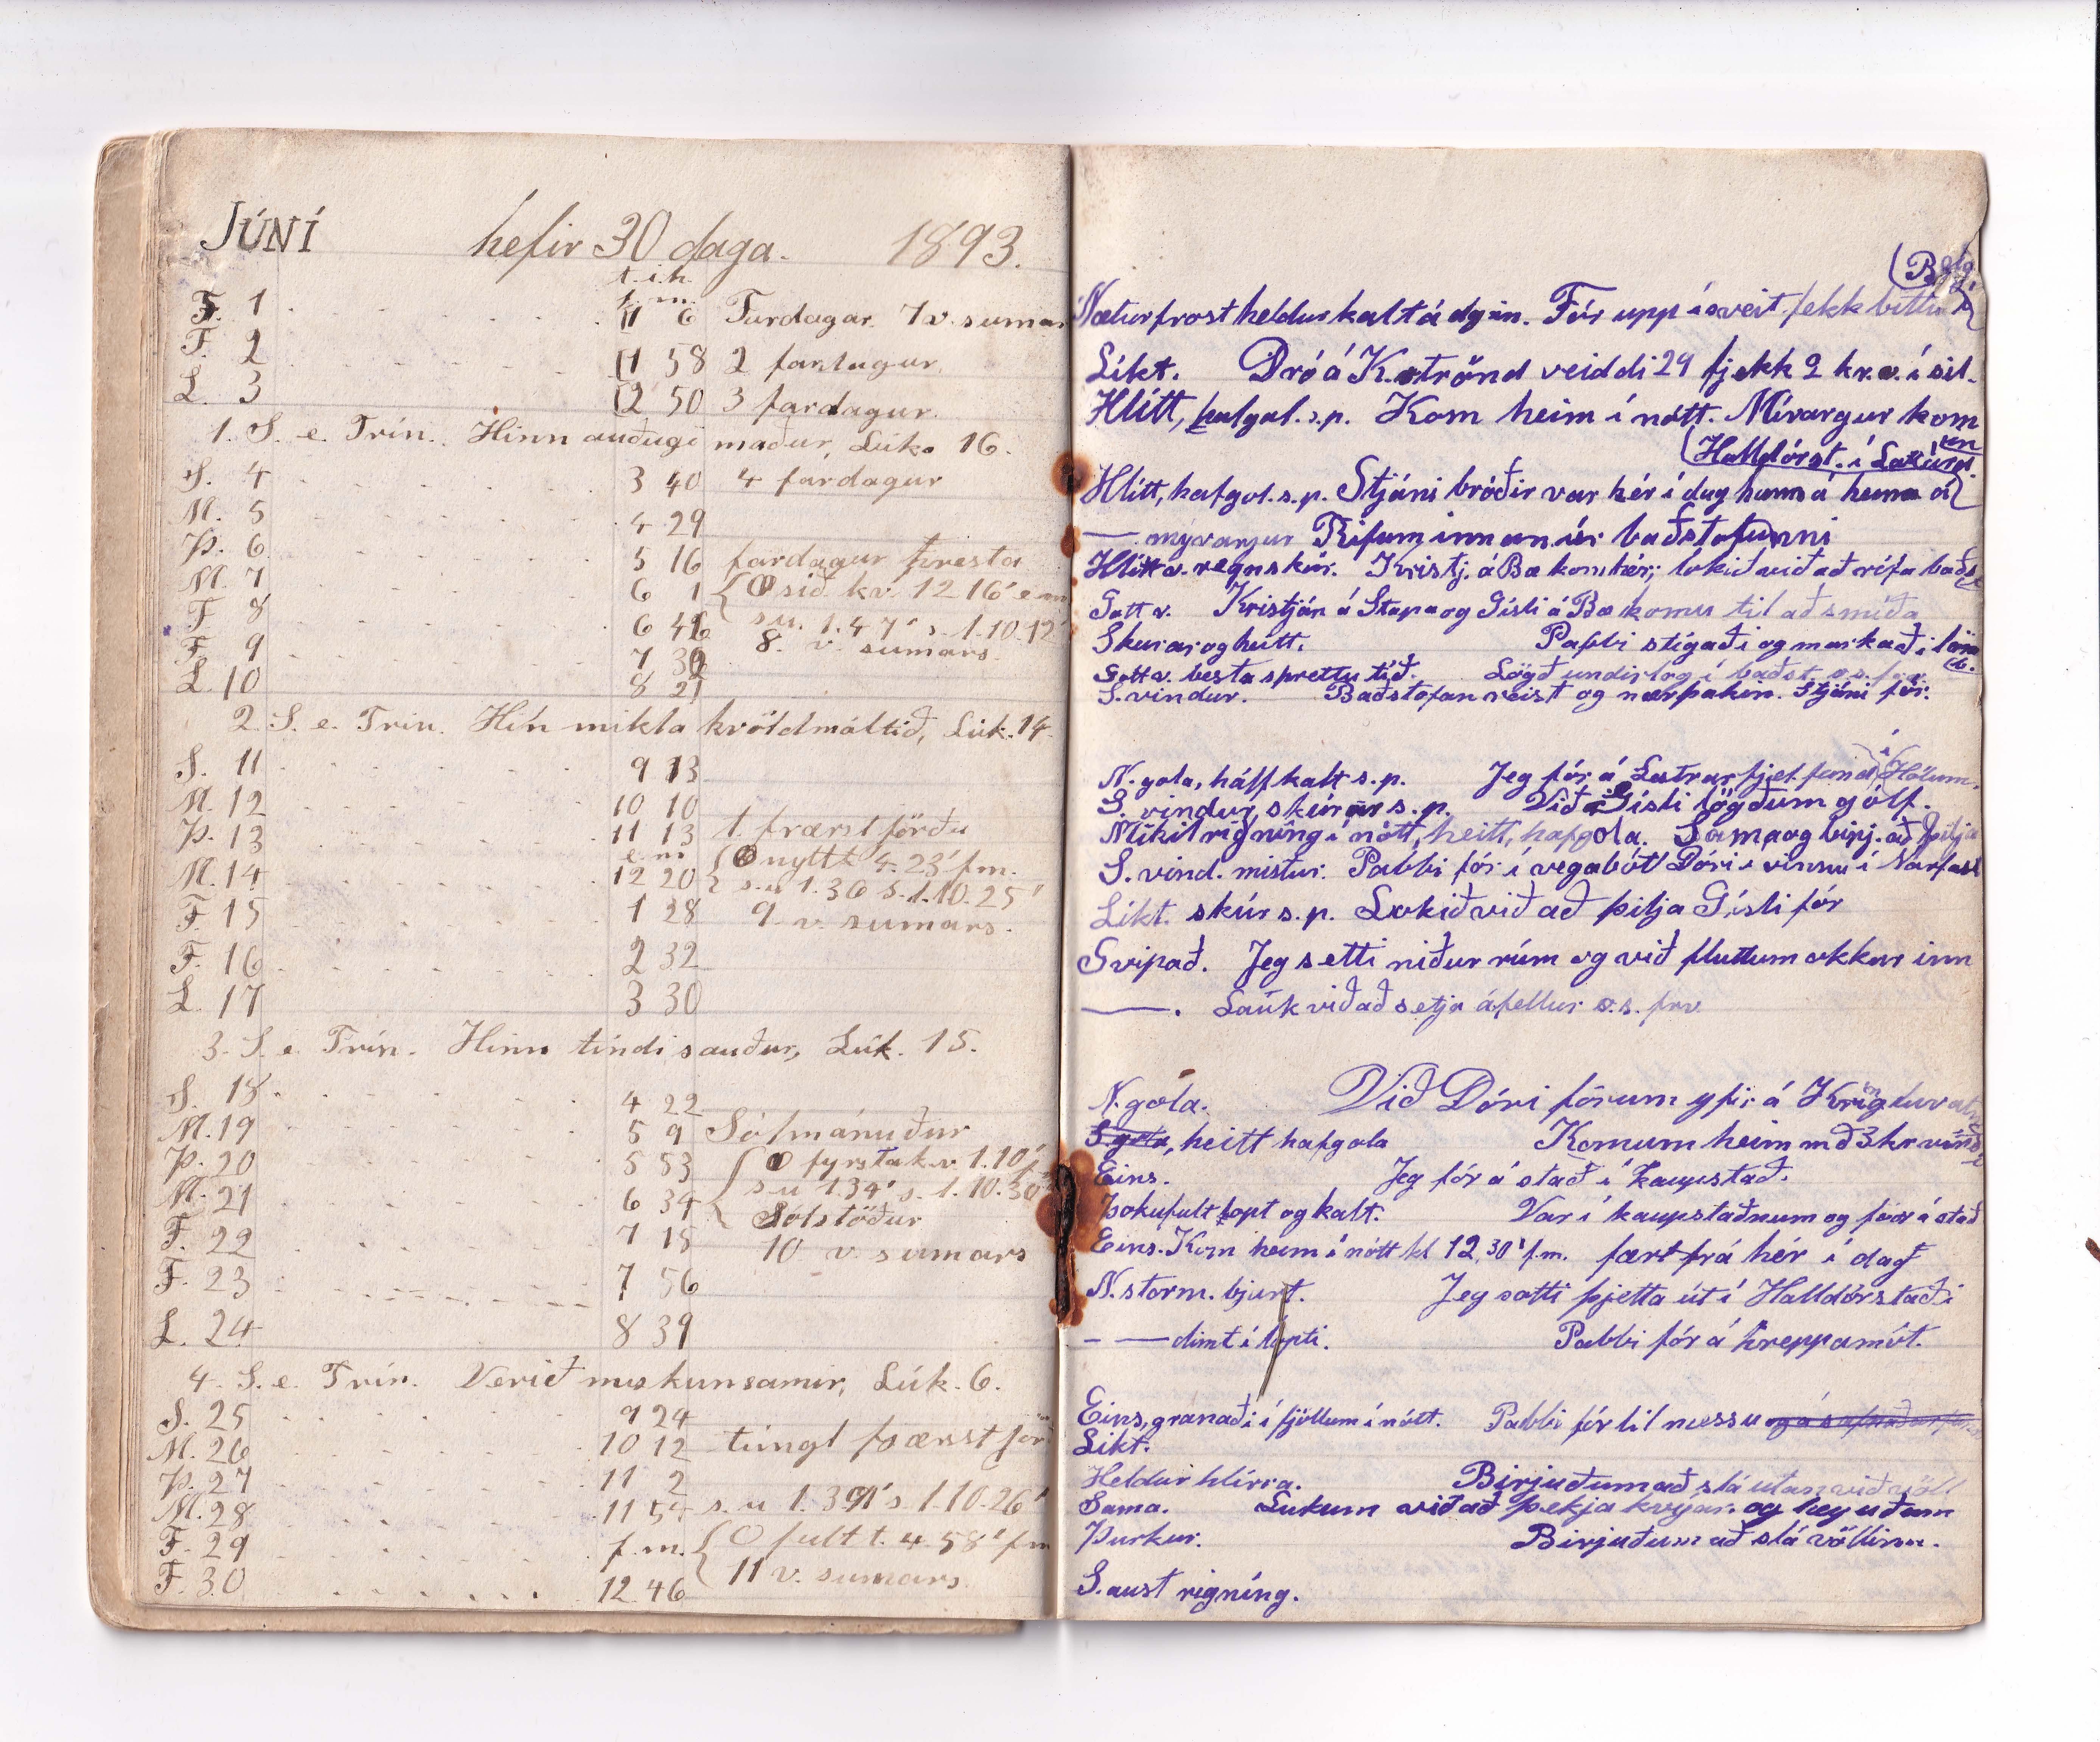 JÚNÍ hefir 30 daga. 1893.
t. í. h.
f. m.
F. 1 11 6 Fardagar. 7 v. sumar
F. 2 11 58 2 fardagur
L. 3 12 50 3 fardagur.
1. S. e. Trin. Hinn auðugi maður, Lúk. 16.
S. 4 3 40 4 fardagur
M. 5 4 29
Þ. 6 5 16 fardagur presta
M. 7 6 1 síð. kv. 12 16' e m
F 8 6 46 s. u. 1. 47' s. l. 10. 12'
F. 9 7 32 8. v. sumars
L. 10 8 21
2. S. e. Trin. Hin mikla kvöldmáltíð, Lúk. 14.
S. 11 9 13
M. 12 10 10
Þ. 13 11 13 t. nærst jörðu
M. 14 e. m. 12 20 nýtt t. 4. 23' f m.
F. 15 1 28 s. u. 1. 36 s. l. 10. 25'
9. v. sumars.
F. 16 2 32
L. 17 3 30
3. S. e. Trin. Hinn tíndi sauður, Lúk. 15.
S. 18 4 22
M. 19 5 9 Sólmánuður
Þ. 20 5 53 fyrsta kv. 1. 10'
M. 21 6 34 s u 1. 34' s. l. 10. 30'
Sólstöður
F. 22 7 15 10 v. sumars
F. 23 7 56
L. 24 8 39
4. S. e. Trin. Verið miskunsamir, Lúk. 6.
S. 25 9 24
M. 26 10 12 túngl færst jör
Þ. 27 11 2
M. 28 11 54 s. u 1. 39' s. l. 10. 26'
F. 29 f. m. fult t. 4. 58' f m
F. 30 12 46 11 v. sumars
Næturfrost heldur kalt á dgin. Fór upp í sveit, fekk bittu
Líkt. Dró á K.strönd veiddi 24 fjekk 2 kr. v. í sil-
Hlítt, hafgol. s.p. Kom heim í nótt. Mívargur kom
(Halldórst. í Laxárd.
Hlítt, hafgol. s.p. Stjáni bróðir var hér í dag hann á heima á
— mývargur Rifum innan úr baðstofunni
Hlítt v. regnskúr. Kristj. á Bæ kom hér; lokið við að rífa baðs
Gott v. Kristján á Stapa og Gísli á Bæ komu til að smíða
Skurar og heitt. Pabbi stígaði og markaði löm
Gott v. besta sprettutíð. Lögð undirlög í baðst. o. s. frv.
S. vindur. Baðstofan reist og nærþakin. Stjáni fór.
N. gola, hálf kalt s. p. Jeg fór á Lestrarfjel.fund í Hólum.
S. vindur, skúrar s. p. Við Gísli lögðum gólf.
Mikil rigning í nótt, heitt, hafgola. Sama og birj. að þilja
S. vind. mistur. Pabbi fór í vegabót Dóri í vinnu í Narfast
Líkt. skúr s. p. Lokið við að þilja Gísli fór
Svipað. Jeg setti niður rúm og við fluttum okkur inn
—. Lauk við að setja áfellur o. s. frv.
N. gola. Við Dóri fórum yfir á Kringluvatn
S. gola, heitt hafgola Komum heim mð 3 kr virði
Eins. Jeg fór á stað í kaupstað.
Þokufult lopt og kalt. Var í kaupstaðnum og fór á stað
Eins. Kom heim í nótt kl 12,30' f.m. fært frá hér í dag
N. storm. bjart. Jeg sótti þjetta út í Halldórstaði
– — dimt í lopti. Pabbi fór á hreppamót.
Eins, granaði í fjöllum í nótt. Pabbi fór til messu
Líkt.
Heldur hlírra. Birjuðum að slá utan við völl
Sama. Lukum við að þekja kvíar og heyuðum
Þurkur. Birjuðum að slá völlinn.
S. aust rigníng.